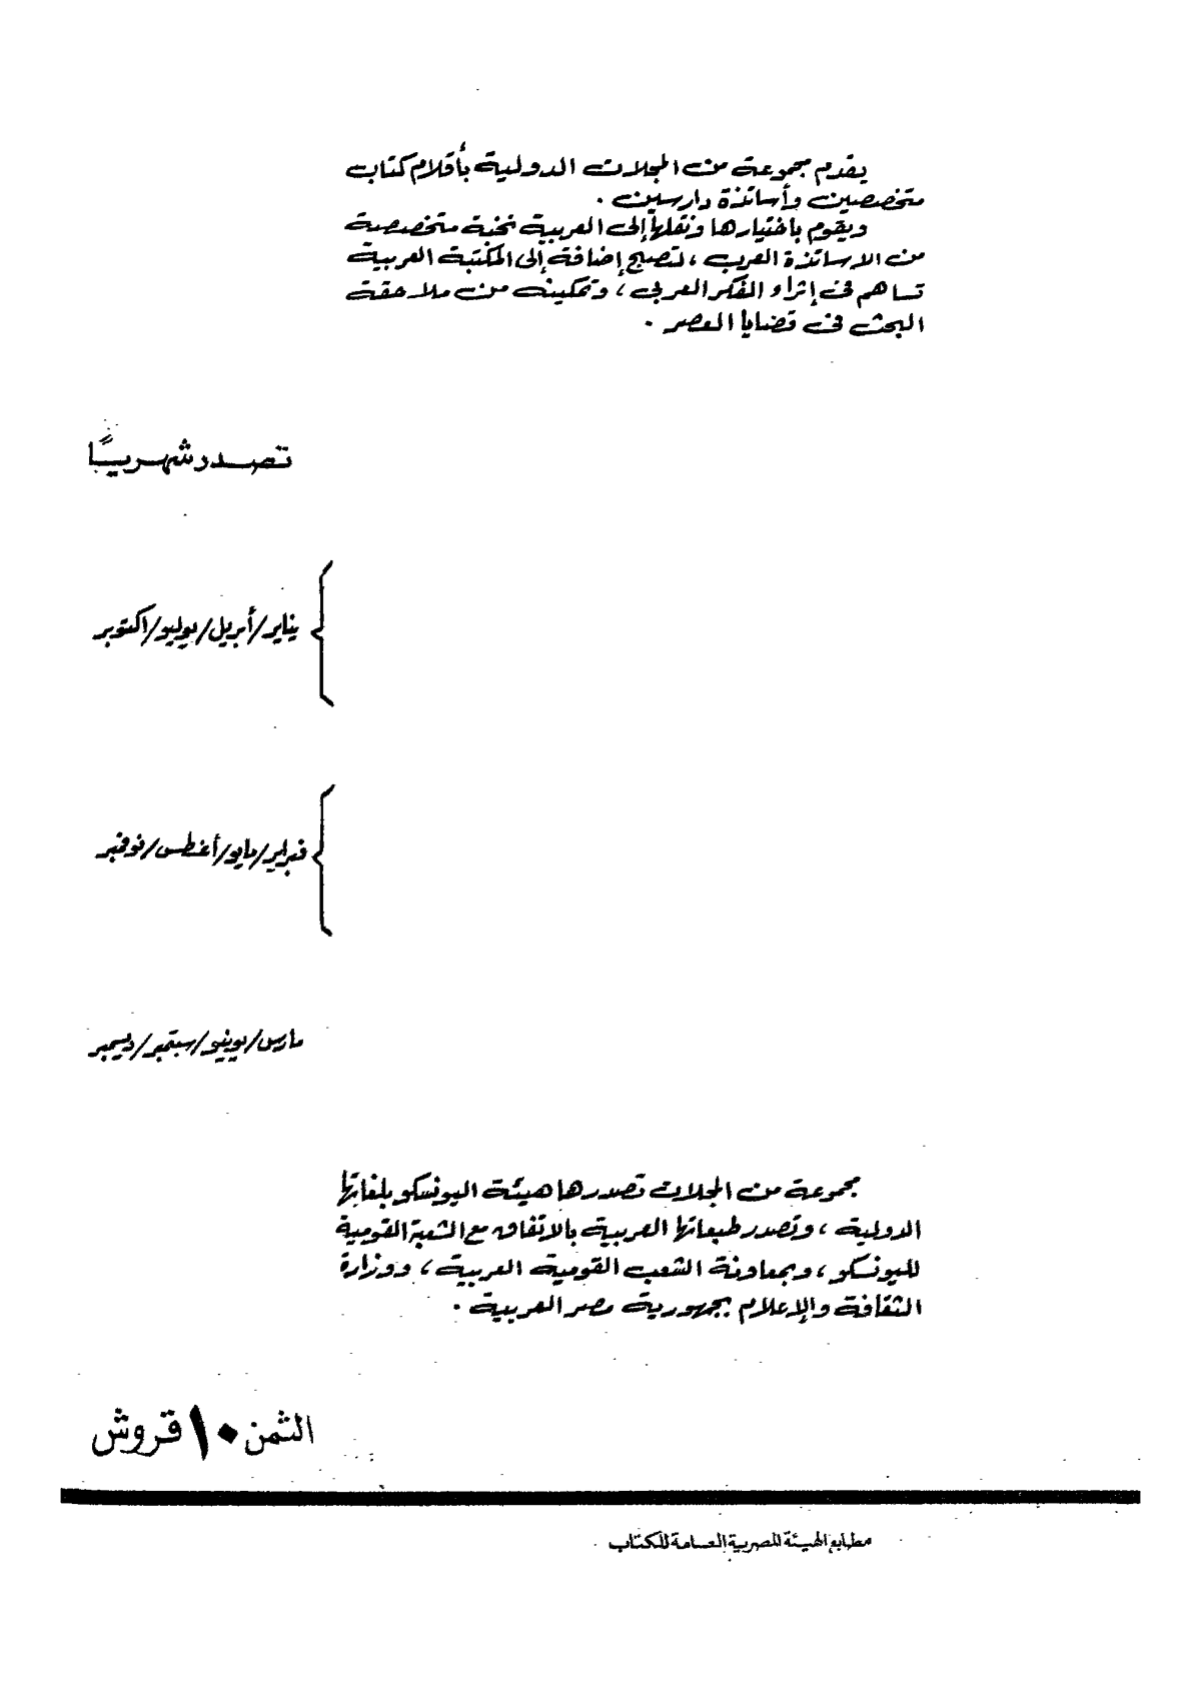 يقدم مجموعة من المجلات الدولية بأقلام كتاب
متخصصين وأساتذة دارسين .
ويقوم باختيارها ونقلها إلى العربية نخبة متخصصة
من الاساتذة العرب ، لتصبح إضافة إلى المكتبة العربية
تساهم فى إثراء الفكر العربى ، وتمكينه من ملاحقة
البحث فى قضايا العصر .
تصدر شهريًا
يناير/أبريل/يوليو/اكتوبر
فبراير/مايو/أغطس/نوفمبر
مارس/يونيو/سبتمبر/ديسمبر
مجموعة من المجلات تصدرها هيئة اليونسكو بلغاتها
الدولية ، وتصدر طبعاتها العربية بالاتفاق مع الشعبة القومية
لليونسكو ، وبمعاونة الشعب القومية العربية ، ووزارة
الثقافة والإعلام بجمهورية مصر العربية .
الثمن ١٠ قروش
مطابع الهيئة المصرية العامة للكتاب